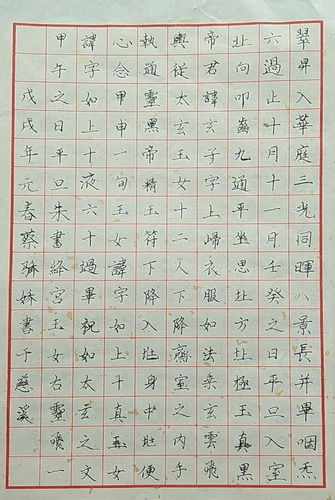 翠昇入華庭三光同暉八景長并畢咽炁
六過止十月十一月壬癸之日平旦入室
北向叩齒九通平坐思北方北極玉真黑
帝君諱玄子字上歸衣服如法乘玄雲飛
輿從太玄玉女十二人下降齋室之内手
執通靈黑帝精玉符下降入北身中北便
心念甲申一旬玉女諱字如上十真玉女
諱字如上十液六十過畢祝如太玄之文
甲午之日平旦朱書絳宮玉女右靈飛一
戊戌年元春蔡 妹書于慈溪